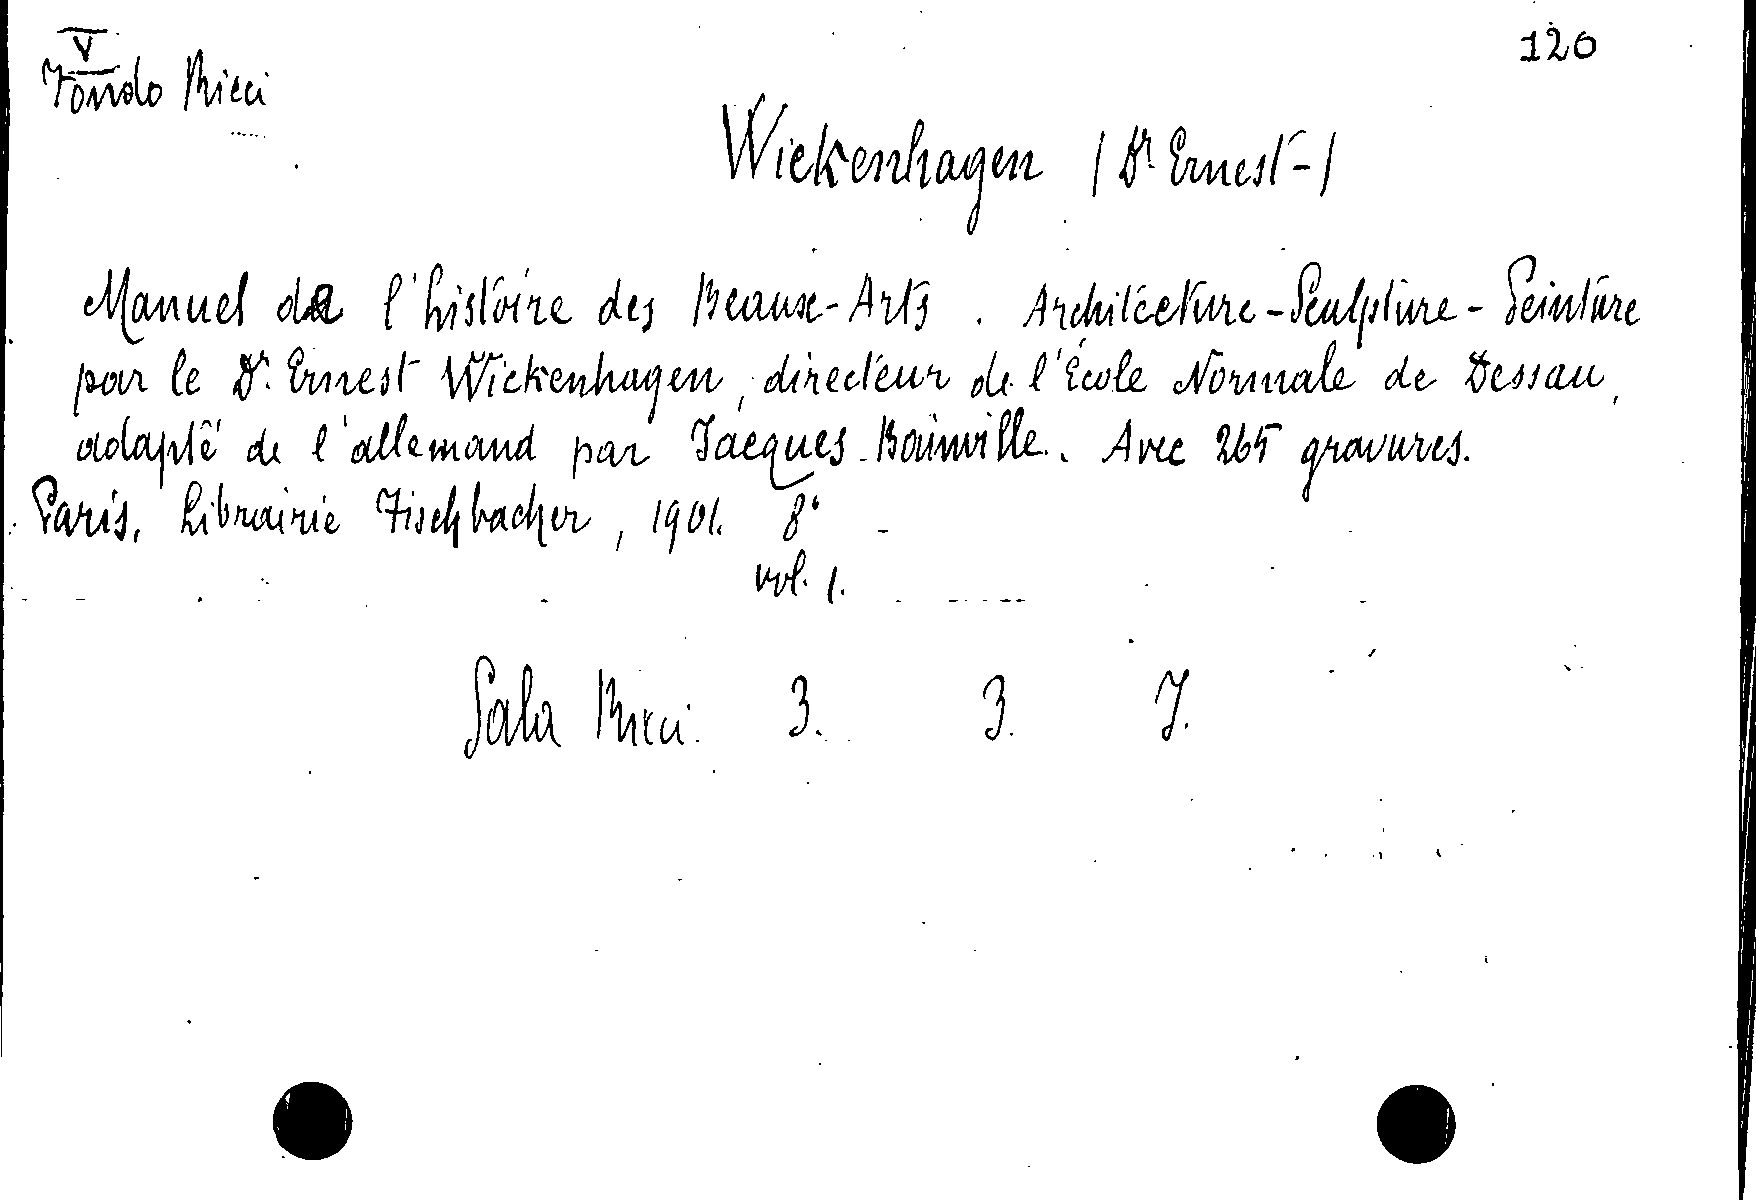 V
120
Fondo Ricci
Wickenhagen (Dr Ernest-)
Manuel de l'histoire des Beaux-Arts. Architecture-Sculpture-Peinture
par le Dr. Ernest Wickenhagen, directeur de l'École Normale de Dessau,
adapté de l'allemand par Jacques Boinville. Avec 265 gravures.
Paris. Librairie Fischbacher, 1901. 8°
vol. 1.
Sala Ricci. 3. 3. 7.